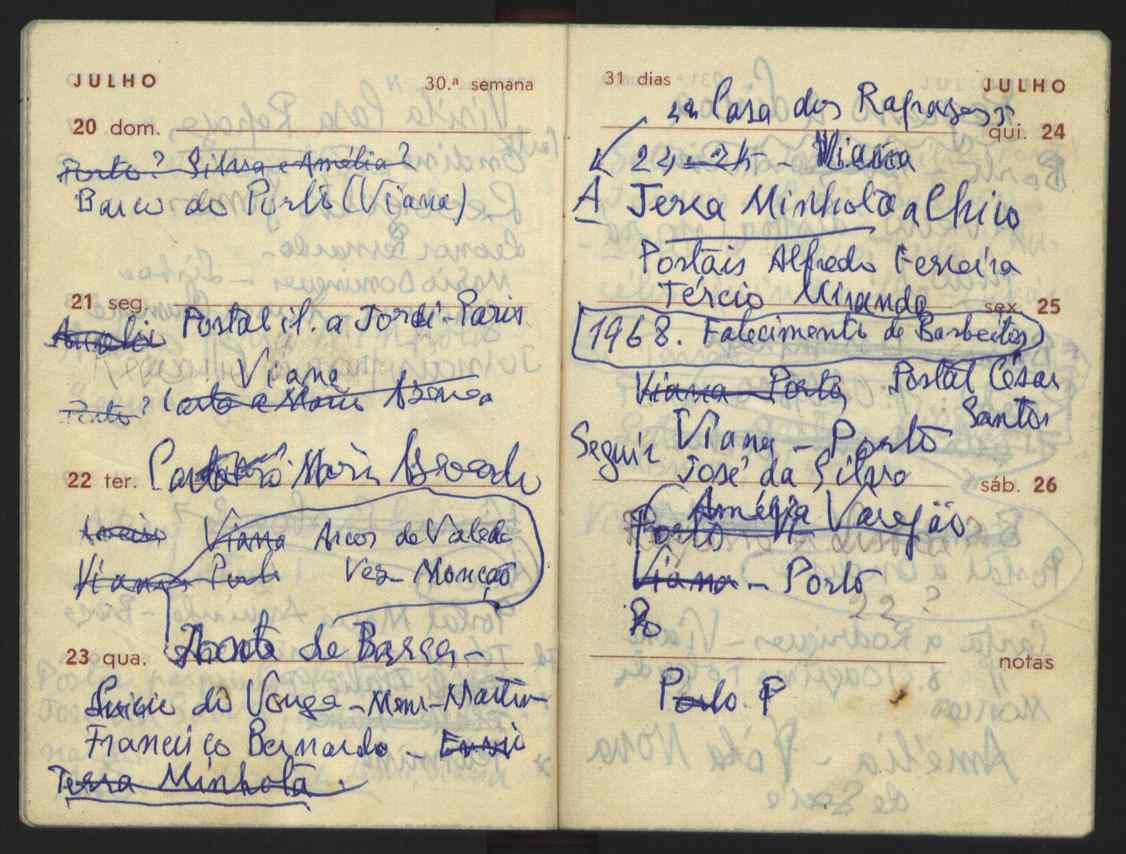 JULHO
30.ª semana
20 dom.
Porto? Silva e Amélia?
Barco do Porto (Viana)
21 seg.
Postal il. a Jordi-Paris
Viana
Porto? Carta a Mário
22 ter.
Mário
Viana Arcos de Valdev
Viana Porto Vez - Monção
Ponte de Barca -
23 qua.
do Vouga - Mem-Martins
Francisco Bernardo -
Terra Minhota.
31 dias
JULHO
Casa dos Rapazes
qui. 24
24 - 2h - Viana
A Terra Minhota a Chico
Postais Alfredo Ferreira
Tércio Miranda
sex. 25
1968. Falecimento de Barbeitos
Viana Porto Postal César
Santos
Seguir Viana - Porto
José da Silva
sáb. 26
Amélia Varejão
Porto
Viana - Porto
Po
notas
Porto. P